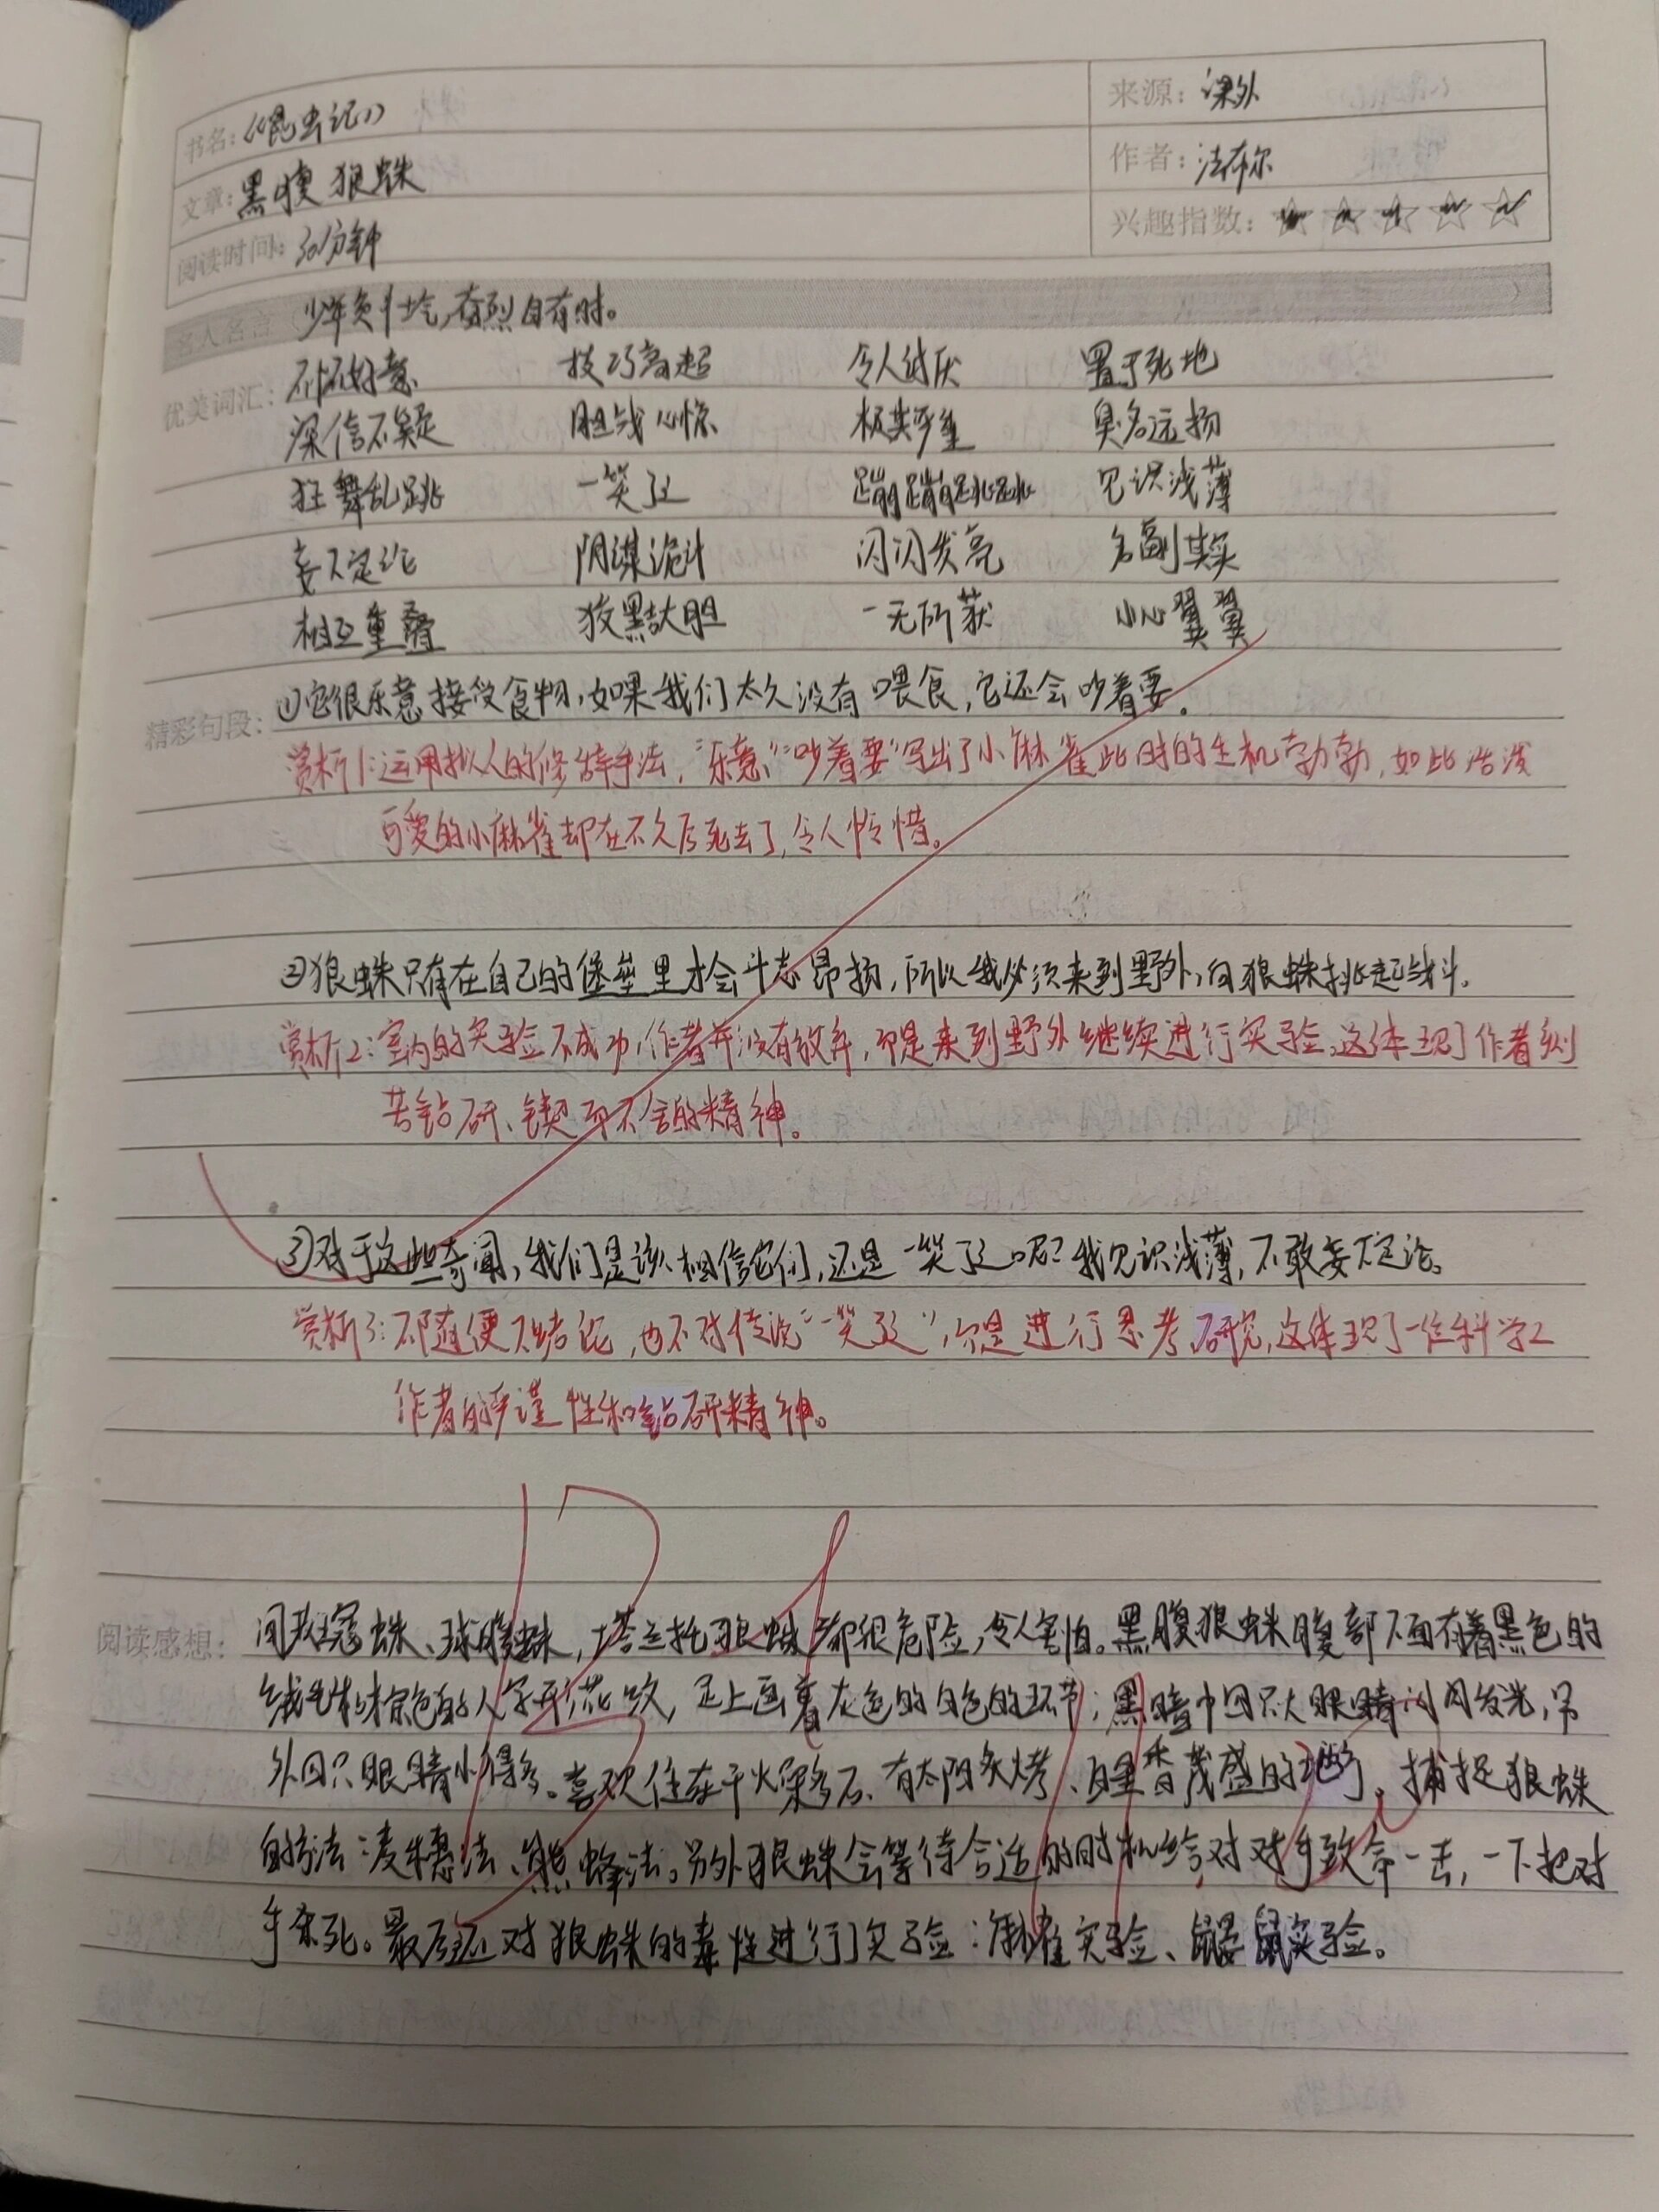 书名：《昆虫记》
来源：课外
文章：黑腹狼蛛
作者：法布尔
阅读时间：30分钟
兴趣指数：
名人名言 少年负壮气，奋烈自有时。
优美词汇：不怀好意 技巧高超 令人讨厌 置于死地
深信不疑 胆战心惊 极其严重 臭名远扬
狂舞乱跳 一笑了之 蹦蹦跳跳 见识浅薄
妄下定论 阴谋诡计 闪闪发亮 名副其实
相互重叠 狡黠大胆 一无所获 小心翼翼
精彩句段：①它很乐意接受食物，如果我们太久没有喂食，它还会吵着要。
赏析1：运用拟人的修辞手法，“乐意”“吵着要”写出了小麻雀此时的生机勃勃，如此活泼
可爱的小麻雀却在不久后死去了，令人怜惜。
②狼蛛只有在自己的堡垒里才会斗志昂扬，所以我必须来到野外，向狼蛛挑起战斗。
赏析2：室内的实验不成功，作者并没有放弃，而是来到野外继续进行实验，这体现了作者刻
苦钻研、锲而不舍的精神。
③对于这些奇闻，我们是该相信它们，还是一笑了之呢？我见识浅薄，不敢妄下定论。
赏析3：不随便下结论，也不对传说“一笑了之”，而是进行思考、研究，这体现了一位科学工
作者的严谨性和钻研精神。
阅读感想：蛛、球腹蛛，塔兰托狼蛛都很危险，令人害怕。黑腹狼蛛腹部下面有着黑色的
绒毛和棕色的人字形花纹，足上画着灰色的白色的环节；黑暗中四只大眼睛闪闪发光，另
外四只眼睛小得多。喜欢住在干火石、有太阳炙烤、百里香茂盛的地方。捕捉狼蛛
的方法：麦穗法、熊蜂法。另外狼蛛会等待合适的时机给对对手致命一击，一下把对
手杀死。最后还对狼蛛的毒性进行了实验：麻雀实验、鼹鼠实验。